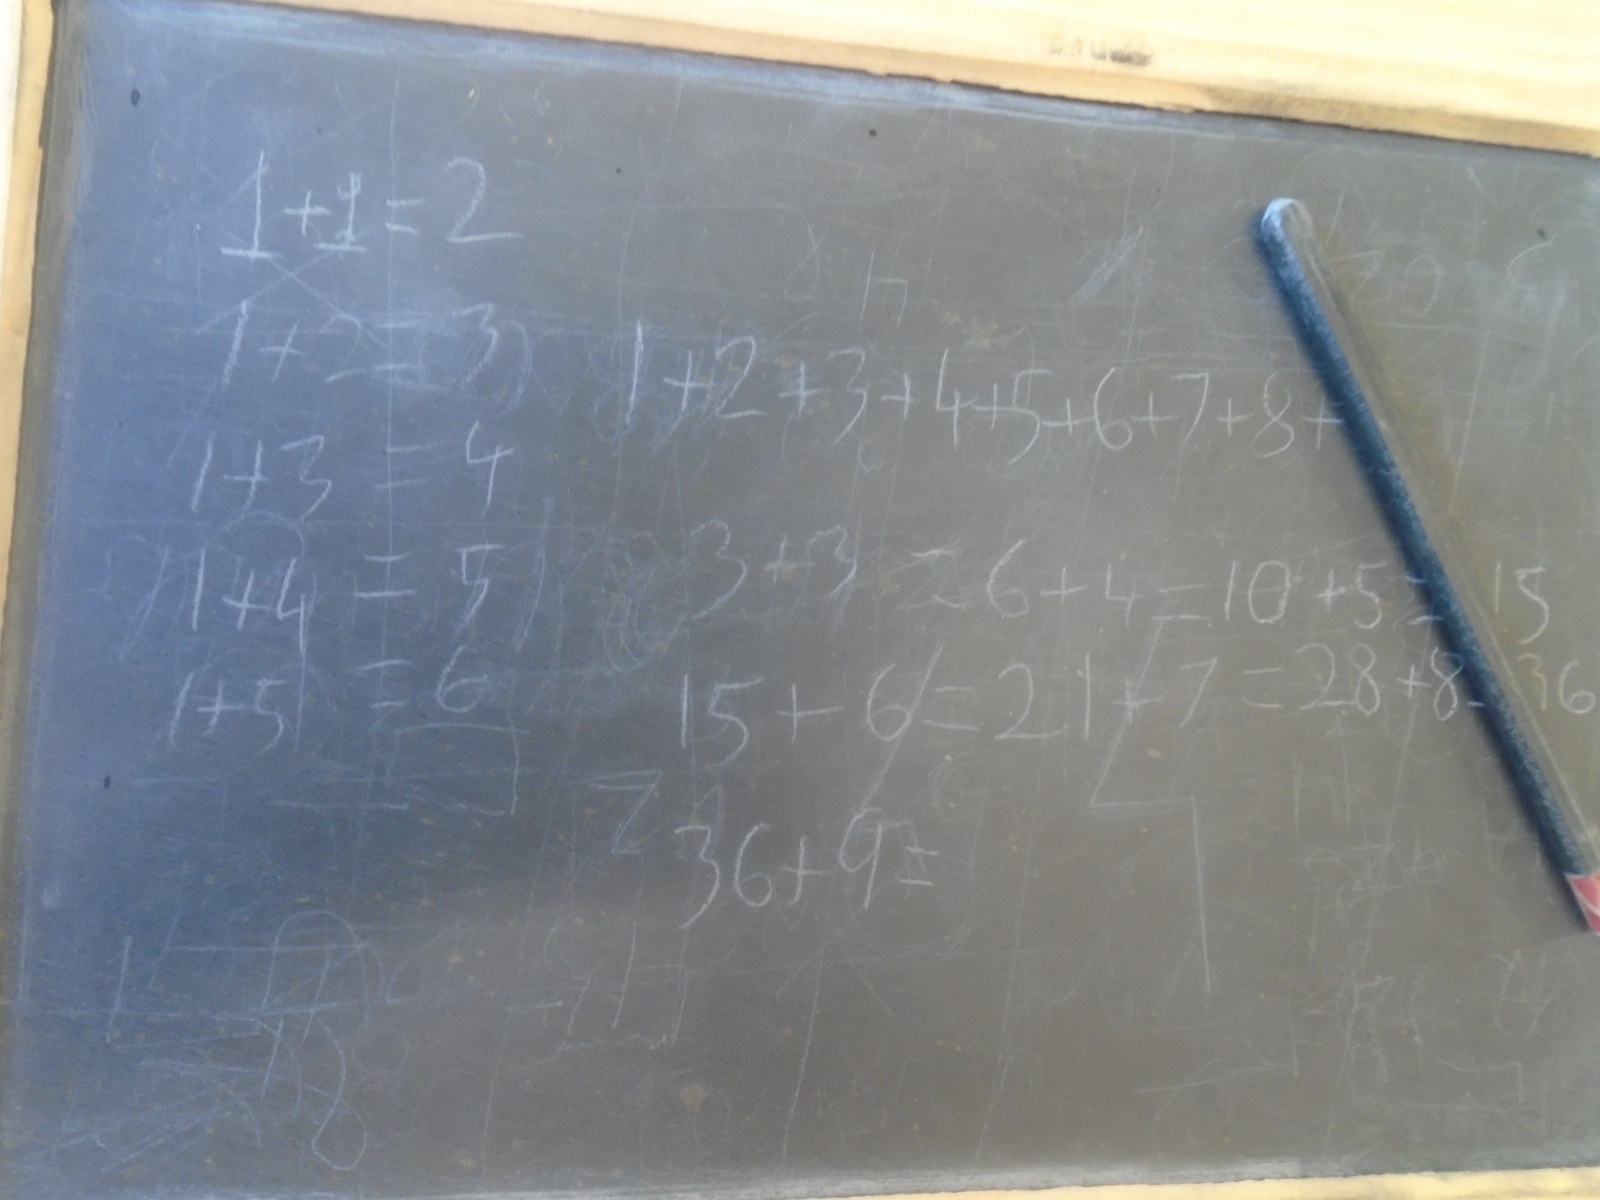 1+1=2
1+2=3
1+3=4
1+4=5
1+5=6
1+2+3+4+5+6+7+8+
3+3=6+4=10+5=15
15+6=21+7=28+8=36
36+9=